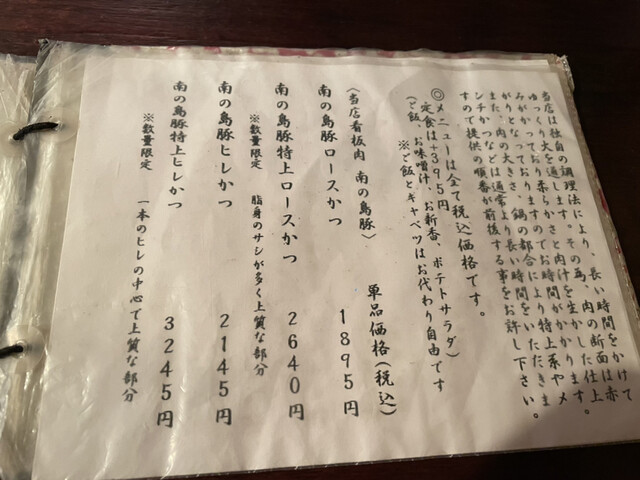 当店は独自の調理法により、長い時間をかけて
ゆっくり火を通します。その為、肉の断面は赤
みがかっており柔らかさと肉汁を生かした仕上
がりとなっておりますのでお時間がかかります。
また、肉の大きさ、鍋の都合により特上系やメ
ンチかつなどは通常より長い時間をいただきま
すので提供の順番が前後する事をお許し下さい。
◎メニューは全て税込価格です。
定食は+395円
(ご飯、お味噌汁、お新香、ポテトサラダ)
※ご飯とキャベツはお代わり自由です
〈当店看板肉 南の島豚〉 単品価格(税込)
南の島豚ロースかつ 1895円
南の島豚特上ロースかつ 2640円
※数量限定 脂身のサシが多く上質な部分
南の島豚ヒレかつ 2145円
南の島豚特上ヒレかつ 3245円
※数量限定 一本のヒレの中心で上質な部分